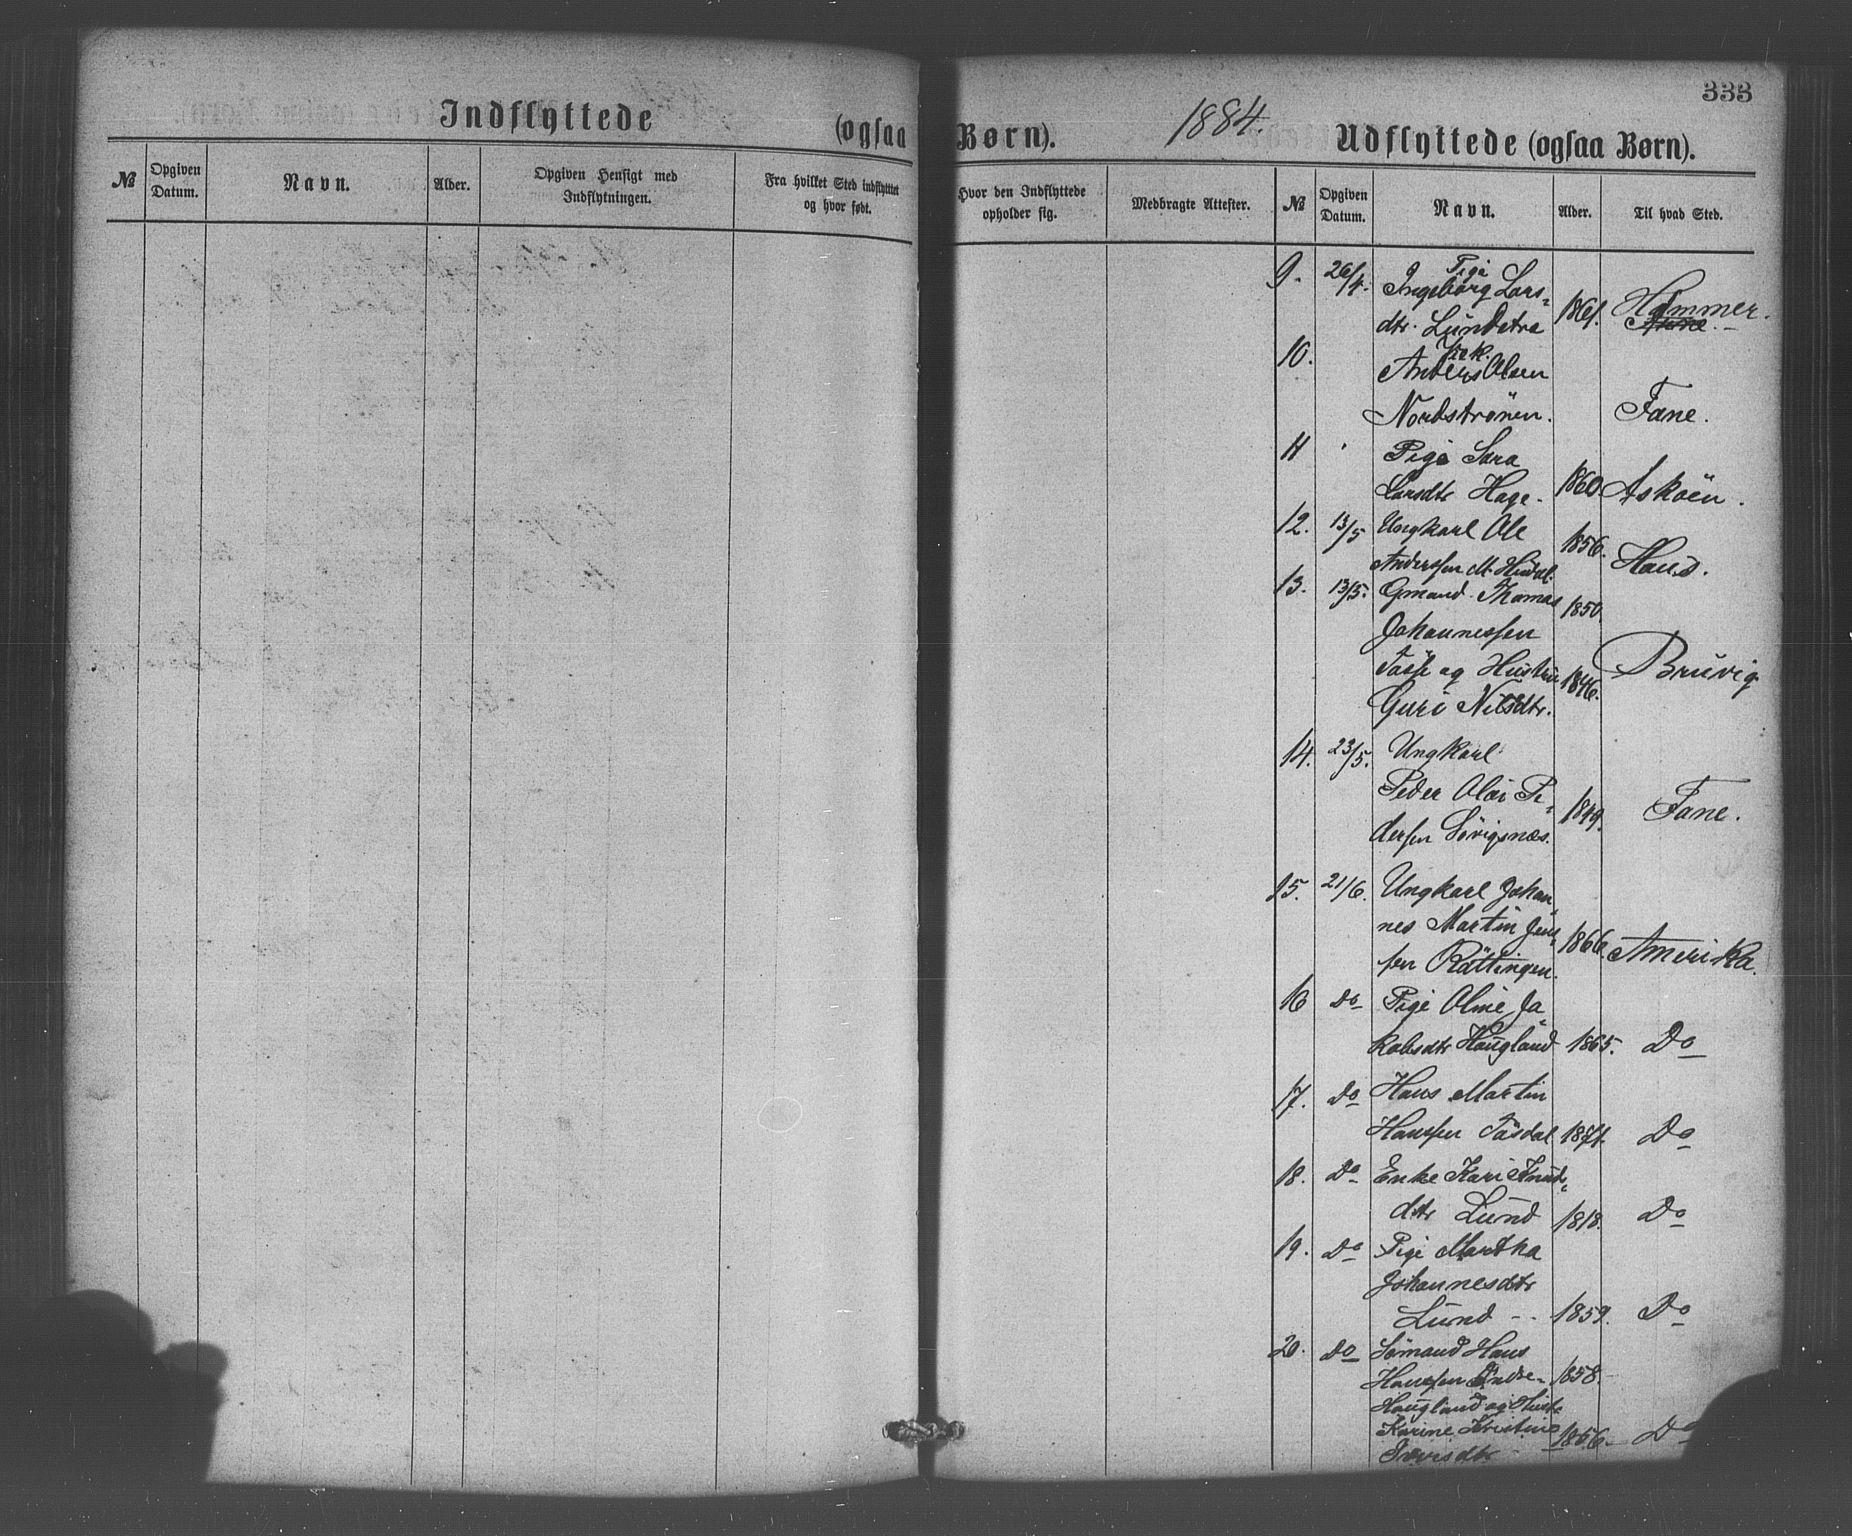 333
Indflyttede (ogsaa Børn). 1884. Udflyttede (ogsaa Børn).
№ Opgiven Datum. Navn. Alder. Opgiven Hensigt med Indflytningen. Fra hvilket Sted indflyttet og hvor født. Hvor den Indflyttede opholder sig. Medbragte Attester. № Opgiven Datum. Navn. Alder. Til hvad Sted.
9. 26/4. Pige
Ingeborg Lars-
dtr. Lundetræ 1861. Hammer.
10. Anders Olsen
Nordstrønen. Fane.
11 Pige Sara
Larsdtr Hage. 1860. Askøen.
12. 13/5 Ungkarl Ole 1856.
Anderssen M. Haus.
13. 13/5. Gmand Thomas 1850.
Johannessen
og Hustru 1846. Bruvig
Guri Nilsdtr.
14. 23/5. Ungkarl
Peder Olai Pe-
dersen Sørvigsnæs. 1849. Fane.
15. 21/6. Ungkarl Johan-
nes Martin Jens-
sen Røttingen. 1866. Amerika.
16 Do Pige Oline Ja-
kobsdtr Haugland 1865. Do
17. Do Hans Martin
Hanssen Døsdal 1871. Do
18. Do Enke Kari Knuds-
dtr Lund 1818. Do
19. Do Pige Martha
Johannesdtr
Lund 1859. Do
20. Do Sömand Hans
Hanssen Indre- 1858.
Haugland og Hustr.
Karine Kristine 1856. Do